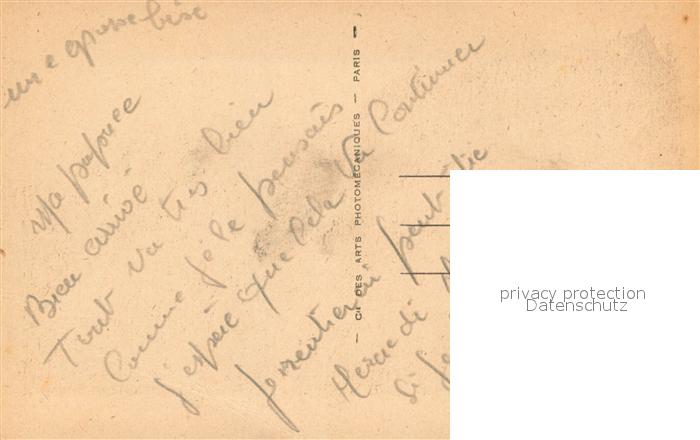 une grosse bise
Ma
Bien arrivé
Tout va très bien
Comme je le pensais
j'espère que cela va continuer
je rentrerai peut être
Mercredi
Si je
— Cie DES ARTS PHOTOMÉCANIQUES — PARIS —
privacy protection
Datenschutz